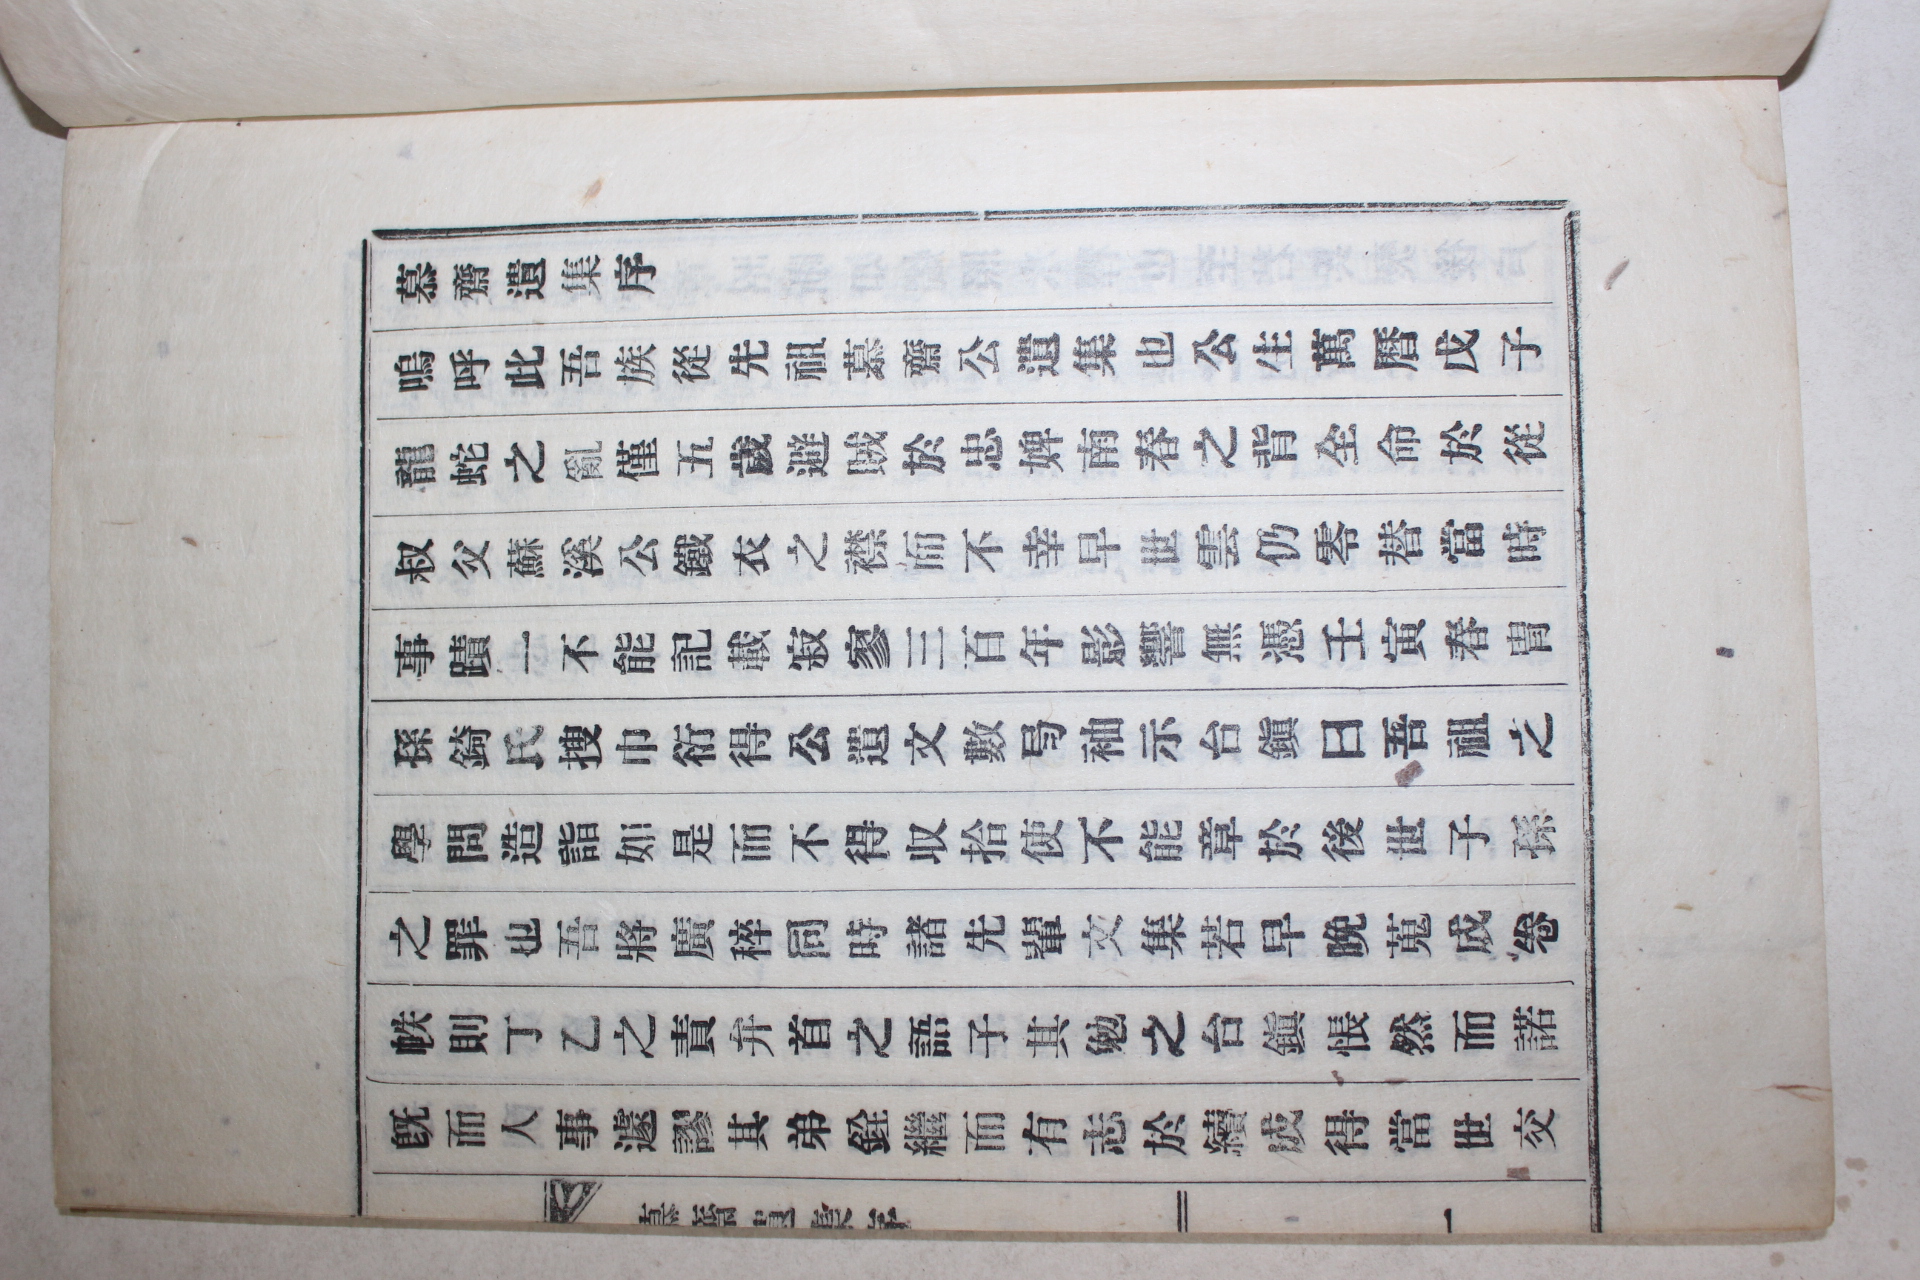 慕齋遺集序
嗚呼此吾族從先祖慕齋公遺集也公生萬曆戊子
龍蛇之亂僅五歲避賊於忠婢南春之背全命於從
叔父蘇溪公鐵衣之襟而不幸早世雲仍零替當時
事蹟一不能記載寂寥三百年影響無憑壬寅春胄
孫錡氏搜巾衍得公遺文數局袖示台鎭曰吾祖之
學問造詣如是而不得収拾使不能章於後世子孫
之罪也吾將廣稡同時諸先輩文集若早晩蒐成卷
帙則丁乙之責弁首之語子其勉之台鎭悵然而諾
旣而人事遽謬其弟銓繼而有志於續成得當世交
慕齋遺集序 一